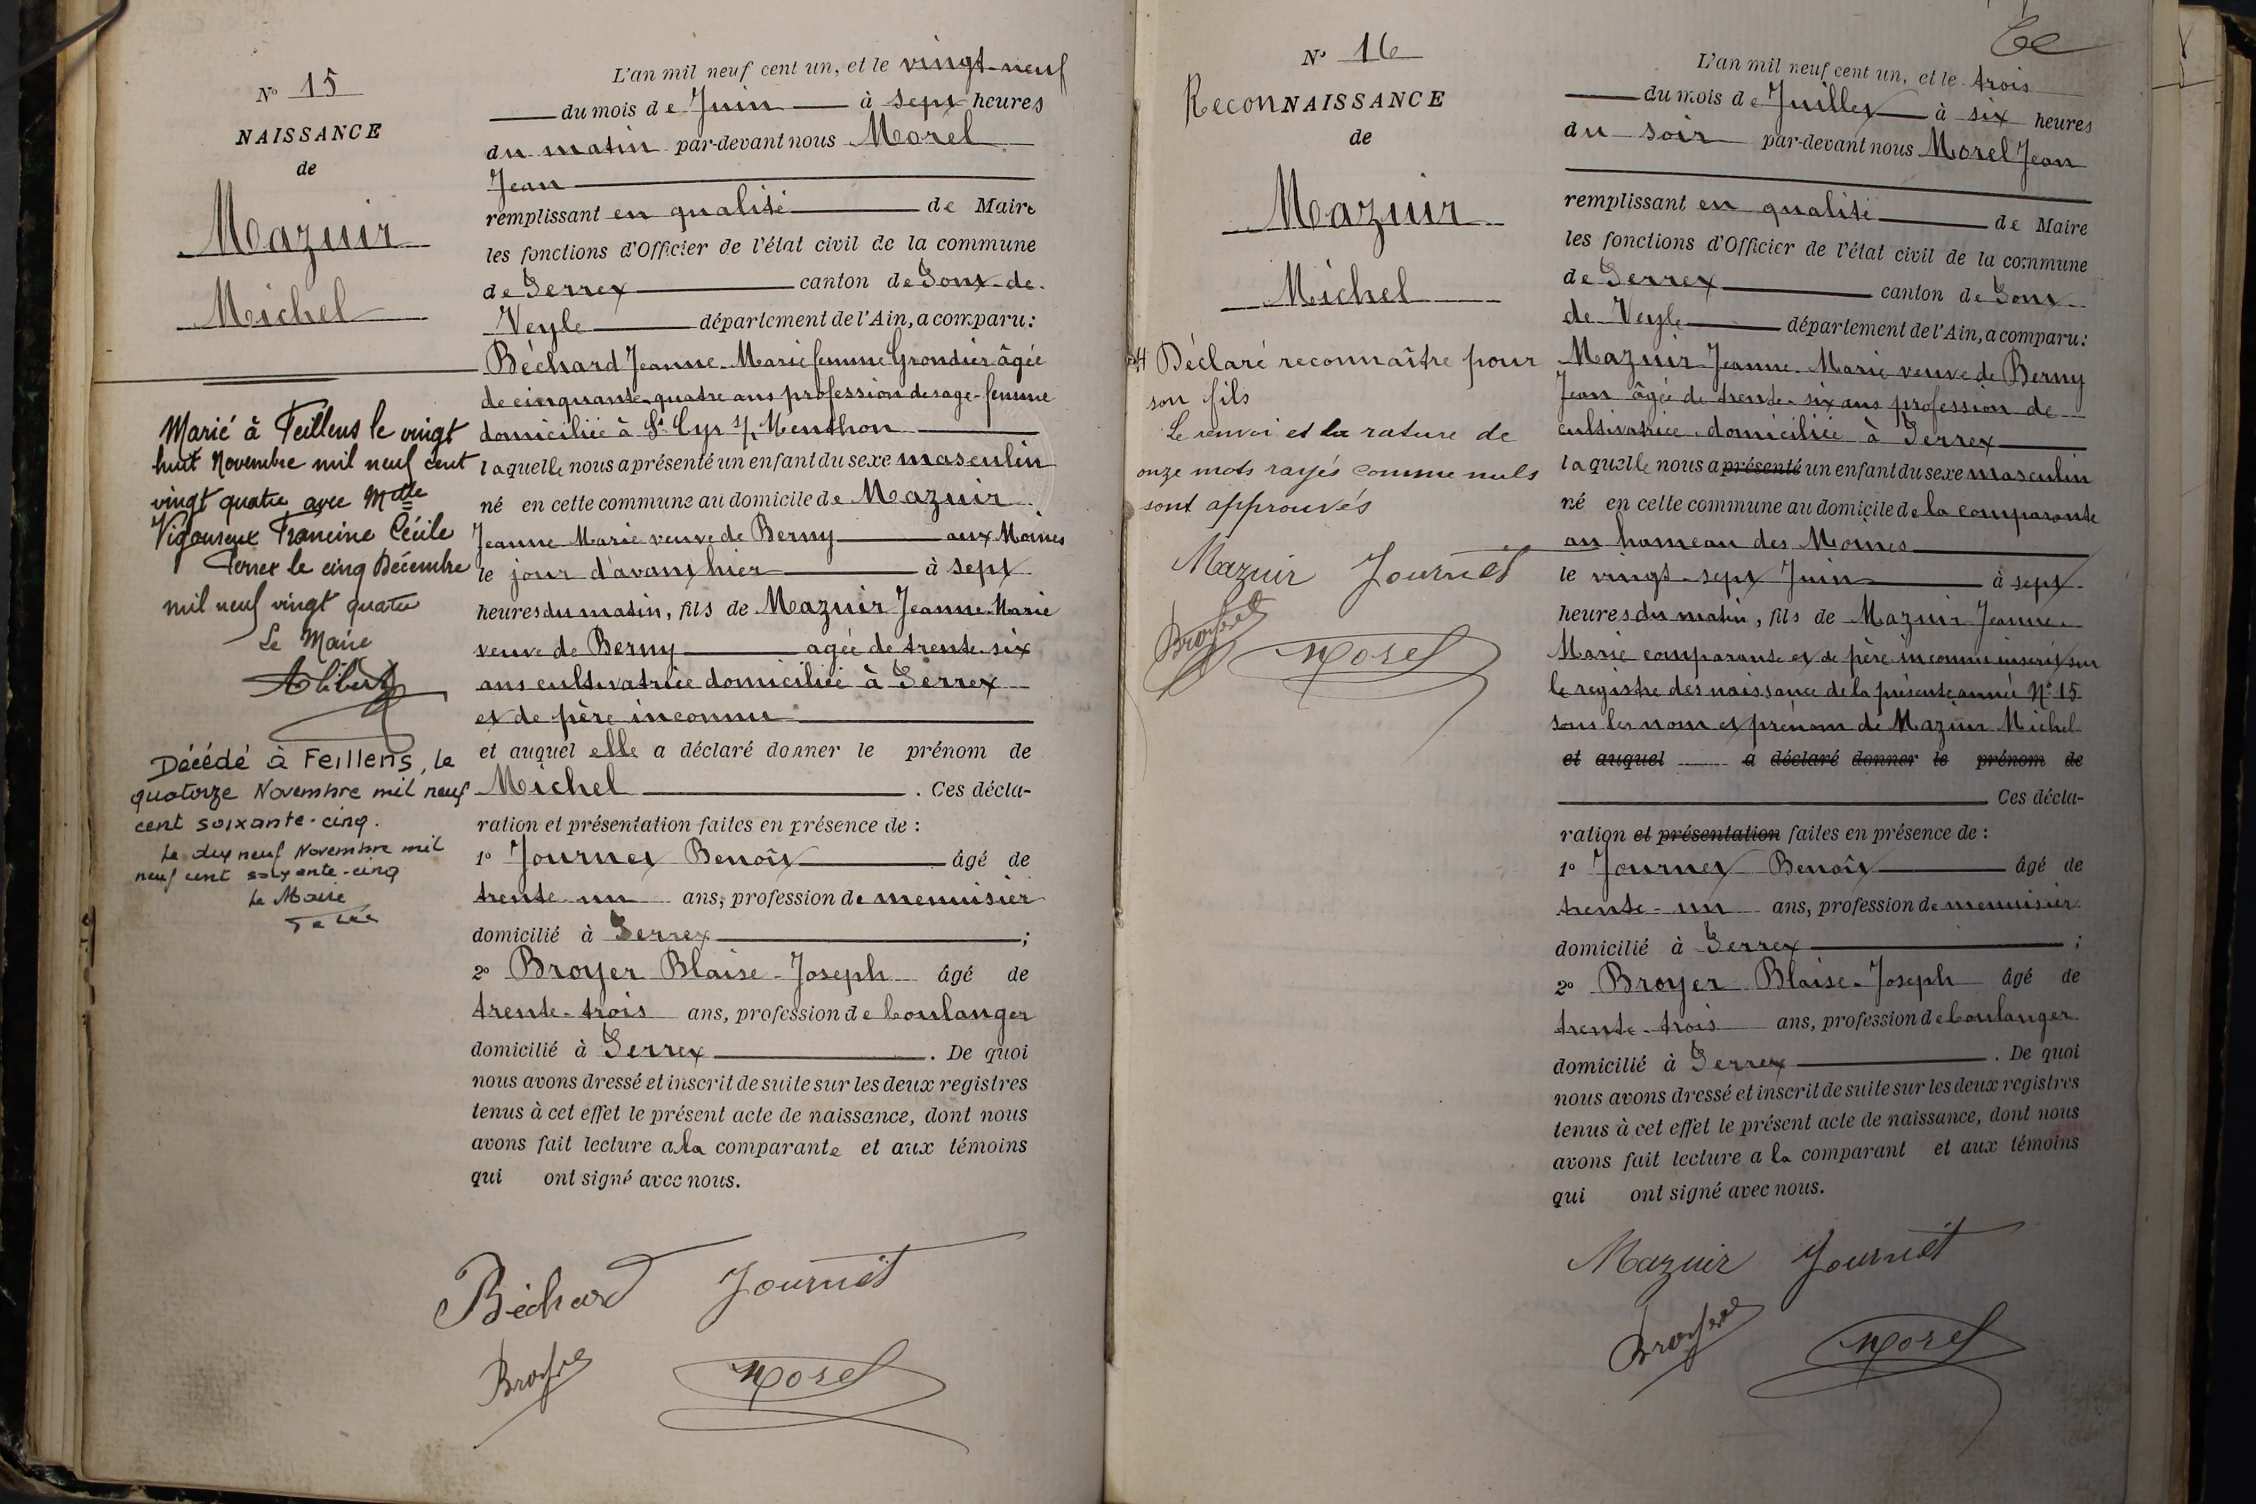 N° 15
NAISSANCE
de
Mazuir
Michel
Marié à Feillens le vingt
huit Novembre mil neuf cent
vingt quatre avec Mlle
Vigoureux Francine Cécile
Perrex le cinq Décembre
mil neuf vingt quatre
Le Maire
Décédé à Feillens, le
quatorze Novembre mil neuf
cent soixante-cinq.
Le dix neuf Novembre mil
neuf cent soixante-cinq
Le Maire
L'an mil neuf cent un, et le vingt-neuf
du mois de Juin à sept heures
du matin par-devant nous Morel
Jean
remplissant en qualité de Maire
les fonctions d'Officier de l'état civil de la commune
de Perrex canton de Pont-de-
Veyle département de l'Ain, a comparu:
Béchard Jeanne-Marie femme Grondier âgée
de cinquante-quatre ans profession de sage-femme
domiciliée à St Cyr s/ Menthon
laquelle nous a présenté un enfant du sexe masculin
né en cette commune au domicile de Mazuir
Jeanne Marie veuve de Berny aux Moines
le jour d'avant hier à sept
heures du matin, fils de Mazuir Jeanne-Marie
veuve de Berny agée de trente-six
ans cultivatrice domiciliée à Perrex
et de père inconnu
et auquel elle a déclaré donner le prénom de
Michel . Ces décla-
ration et présentation faites en présence de :
1° Journet Benoît âgé de
trente-un ans, profession de menuisier
domicilié à Perrex ;
2° Broyer Blaise-Joseph âgé de
trente-trois ans, profession de boulanger
domicilié à Perrex . De quoi
nous avons dressé et inscrit de suite sur les deux registres
tenus à cet effet le présent acte de naissance, dont nous
avons fait lecture a la comparante et aux témoins
qui ont signé avec nous.
Béchard Journet
Broyer Morel
N° 16
ReconNAISSANCE
de
Mazuir
Michel
Déclaré reconnaître pour
son fils
Le renvoi et la rature de
onze mots rayés comme nuls
sont approuvés
Mazuir Journet
Broyer Morel
L'an mil neuf cent un, et le trois
du mois de Juillet à six heures
du soir par-devant nous Morel Jean
remplissant en qualité de Maire
les fonctions d'Officier de l'état civil de la commune
de Perrex canton de Pont
de Veyle département de l'Ain, a comparu:
Mazuir Jeanne-Marie veuve de Berny
Jean âgée de trente-six ans profession de
cultivatrice domiciliée à Perrex
laquelle nous a présenté un enfant du sexe masculin
né en cette commune au domicile de la comparante
au hameau des Moines
le vingt-sept Juin à sept
heures du matin, fils de Mazuir Jeanne-
Marie comparante et de père inconnu inscrit sur
le registre des naissance de la présente année N° 15
sous les nom et prénom de Mazuir Michel
et auquel a déclaré donner le prénom de
Ces décla-
ration et présentation faites en présence de :
1° Journet Benoît âgé de
trente-un ans, profession de menuisier
domicilié à Perrex ;
2° Broyer Blaise-Joseph âgé de
trente-trois ans, profession de boulanger
domicilié à Perrex . De quoi
nous avons dressé et inscrit de suite sur les deux registres
tenus à cet effet le présent acte de naissance, dont nous
avons fait lecture a la comparant et aux témoins
qui ont signé avec nous.
Mazuir Journet
Broyer Morel